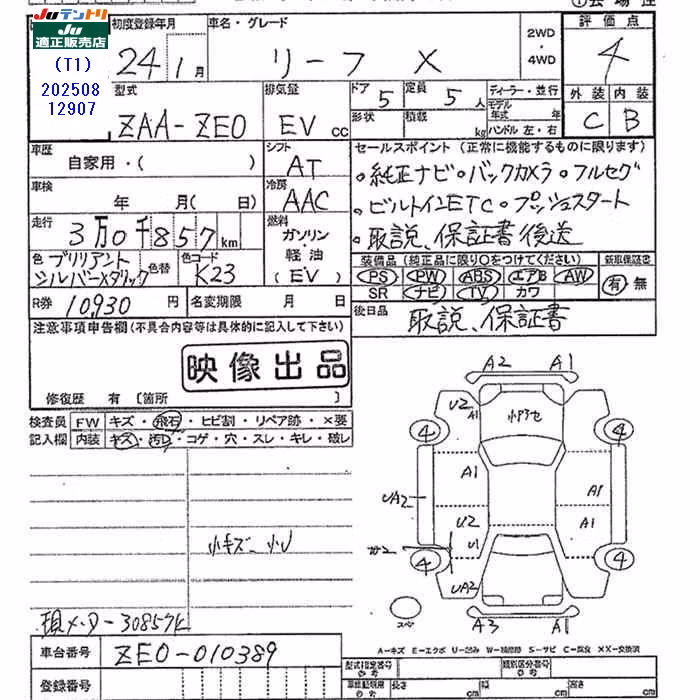 JUテントリ
JU
適正販売店
(T1)
202508
12907
初度登録年月
24 1月
車名・グレード
リーフ X
2WD
・
4WD
評価点
4
外装 内装
C B
型式
ZAA-ZE0
排気量
EV cc
ドア 5
定員 5人
形状
積載 kg
ディーラー・並行
モデル年式 年式
ハンドル 左・右
車歴
自家用・( )
シフト
AT
セールスポイント (正常に機能するものに限ります)
・純正ナビ・バックカメラ・フルセグ
・ビルトインETC・プッシュスタート
・取説、保証書後送
車検
年 月( 日)
冷房
AAC
走行
3万0千857km
燃料
ガソリン
・
軽油
(EV)
色 ブリリアント
シルバーメタリック
色替
色コード
K23
装備品(純正品に限り○をつけてください)
PS PW ABS エアB AW
SR ナビ TV カワ
新車保証書
有・無
R券 10,930円
名変期限 月 日
後日品
取説、保証書
注意事項申告欄(不具合内容等は具体的に記入して下さい)
映像出品
修復歴 有〔箇所 〕
検査員
記入欄
FW キズ・飛石・ヒビ割・リペア跡・×要
内装 キズ・汚レ・コゲ・穴・スレ・キレ・破レ
小キズ、小U
現メータ-30857K
A2 A1
U2 A1
4 4
A1
UA2
A1
U2 A1
U1
4 4
UA2
A3 A1
スペア
A-キズ E-エクボ U-凹み W-補修跡 S-サビ C-腐食 XX-交換済
車台番号 ZE0-010389
登録番号
型式指定番号
類別区分番号
長さ cm
幅 cm
高さ cm